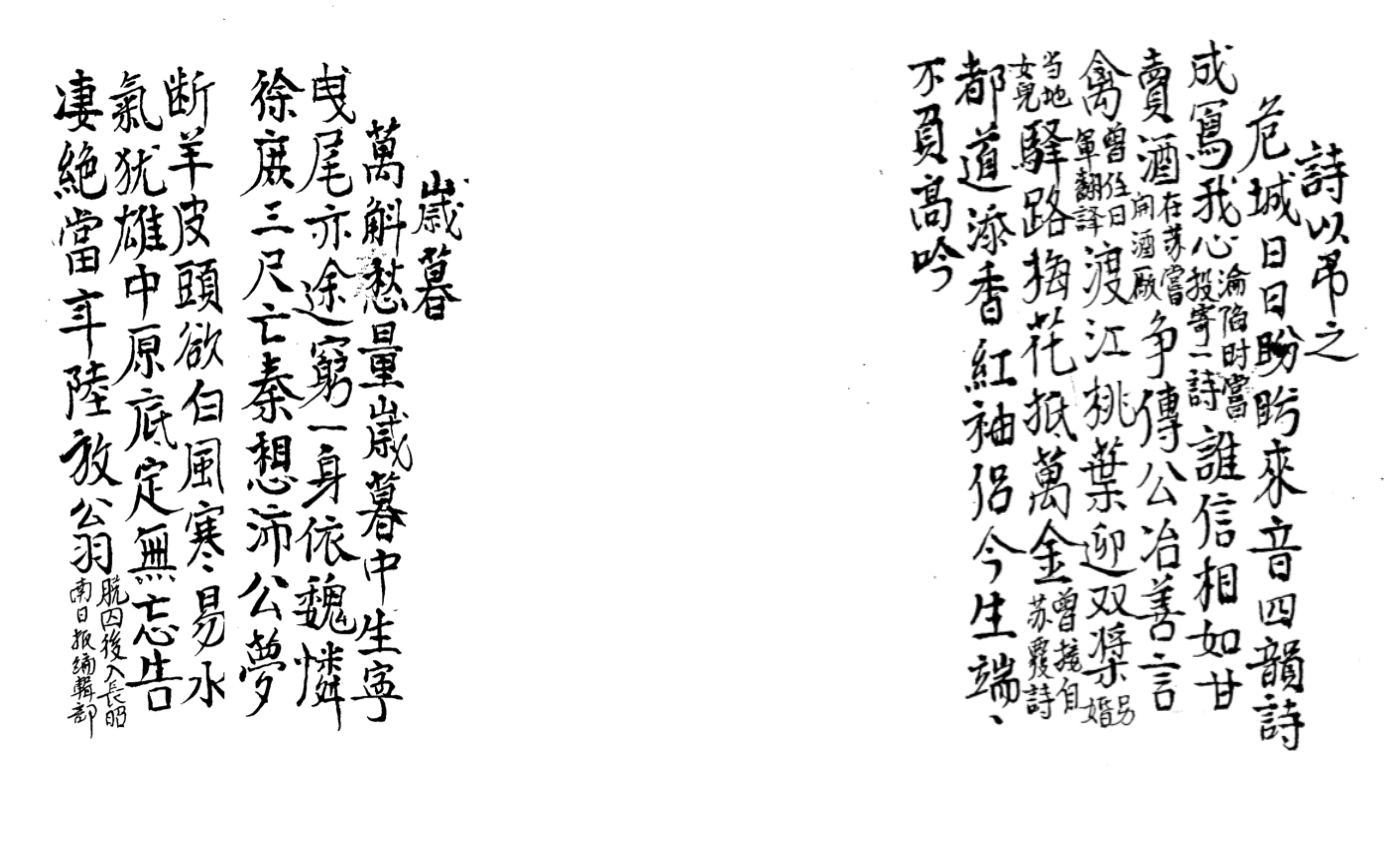 詩以弔之
危城日日盼來音四韻詩
成寫我心淪陷时嘗投寄一詩誰信相如甘
賣酒在苏嘗開酒廠争傳公冶善言
禽曾任日軍翻譯渡江桃葉迎双槳另婚
当地女兒驿路梅花抵萬金曾接自苏覆詩
都道添香紅袖侣今生端、
不負高吟
歲暮
萬斛愁量歲暮中生寧
曳尾亦途窮一身依魏憐
徐庶三尺亡秦想沛公夢
断羊皮頭欲白風寒易水
氣犹雄中原底定無忘告
凄絶當年陸放翁脱囚後入長昭南日报编輯部